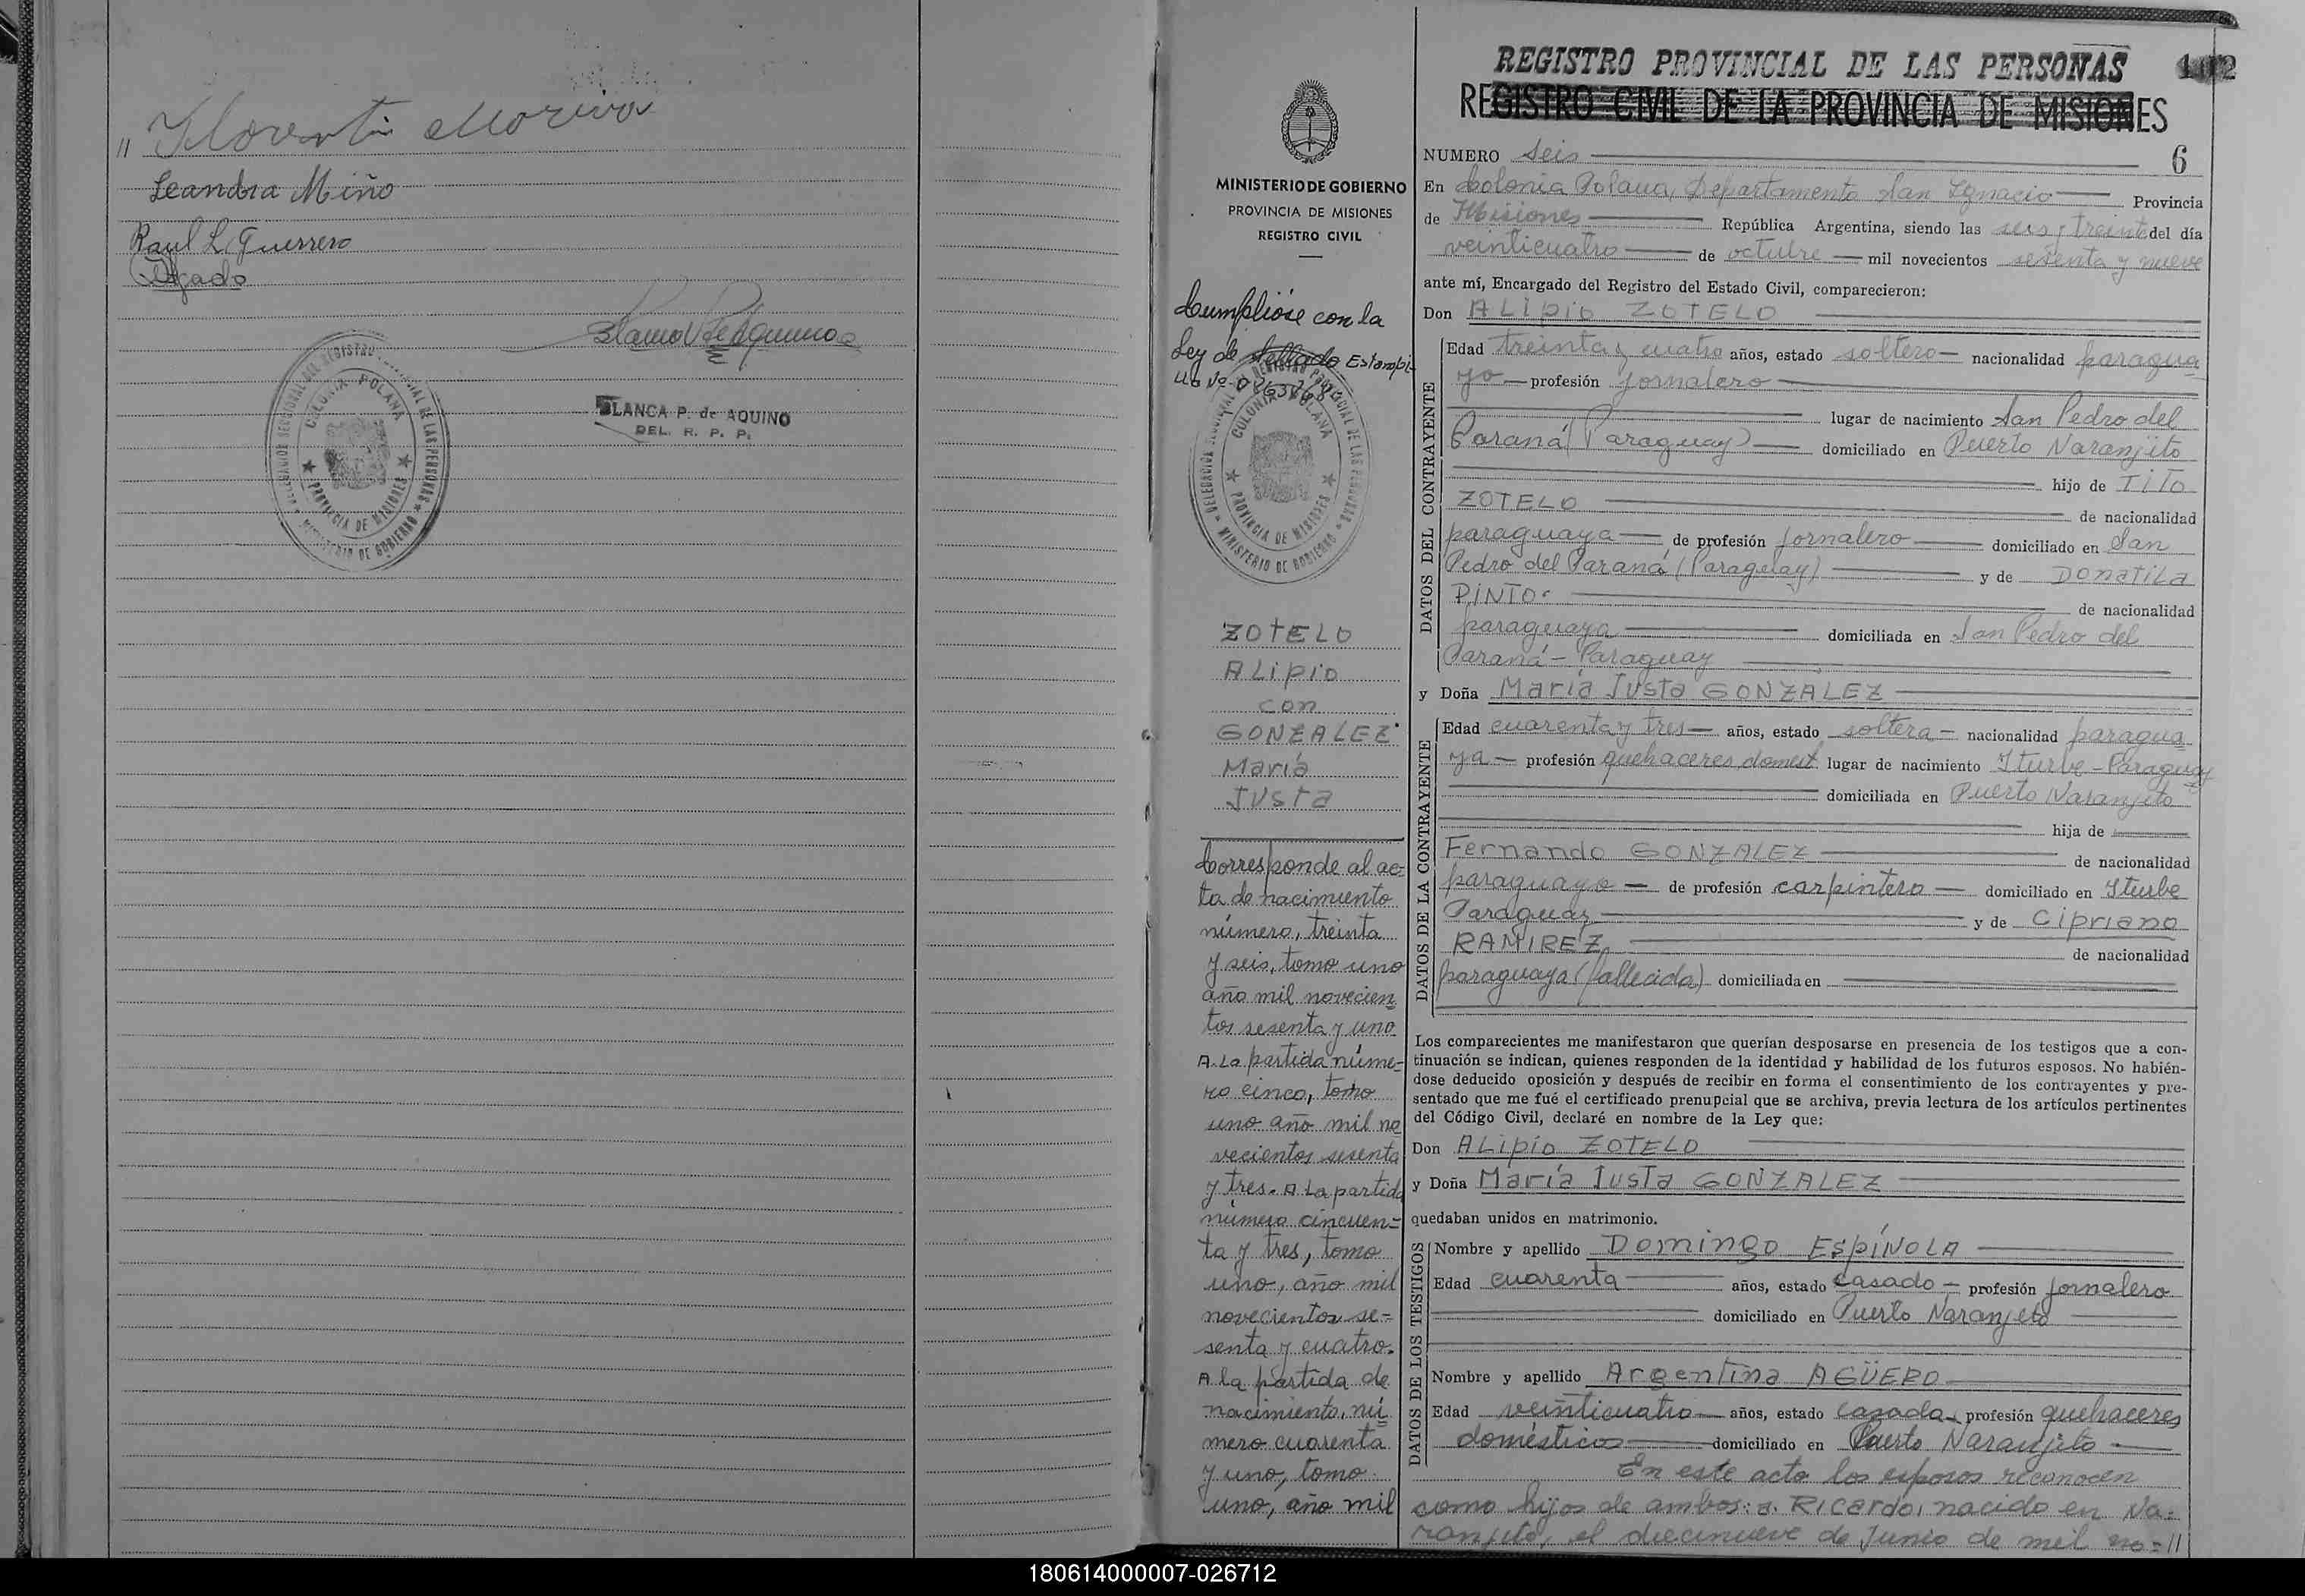 " Florentin Moriva
Leandra Miño
Raul L. Guerrero
Blanca P de Aquino
BLANCA P. de AQUINO
DEL. R. P. P.
DELEGACION SECCIONAL DEL REGISTRO PROVINCIAL DE LAS PERSONAS
COLONIA POLANA
PROVINCIA DE MISIONES
MINISTERIO DE GOBIERNO
MINISTERIO DE GOBIERNO
PROVINCIA DE MISIONES
REGISTRO CIVIL
Cumplióse con la
Ley de Sellado Estampi-
lla Nº
DELEGACION SECCIONAL DEL REGISTRO PROVINCIAL DE LAS PERSONAS
COLONIA POLANA
PROVINCIA DE MISIONES
MINISTERIO DE GOBIERNO
ZOTELO
ALIPIO
con
GONZALEZ
María
Justa
Corresponde al ac=
ta de nacimiento
número, treinta
y seis, tomo uno
año mil novecien
tos sesenta y uno
A la partida núme=
ro cinco, tomo
uno año mil no
vecientos sesenta
y tres. A la partida
número cincuen=
ta y tres, tomo
uno, año mil
novecientos se=
senta y cuatro.
A la partida de
nacimiento, nú
mero cuarenta
y uno, tomo
uno, año mil
REGISTRO PROVINCIAL DE LAS PERSONAS
REGISTRO CIVIL DE LA PROVINCIA DE MISIONES
NUMERO Seis 6
En Colonia Polana, Departamento San Ignacio Provincia
de Misiones República Argentina, siendo las seis y treinta del día
veinticuatro de octubre mil novecientos sesenta y nueve
ante mí, Encargado del Registro del Estado Civil, comparecieron:
Don ALIPIO ZOTELO
DATOS DEL CONTRAYENTE
Edad treinta y cuatro años, estado soltero nacionalidad paragua
yo profesión jornalero
lugar de nacimiento San Pedro del
Paraná (Paraguay) domiciliado en Puerto Naranjito
hijo de TITO
ZOTELO de nacionalidad
paraguaya de profesión jornalero domiciliado en San
Pedro del Paraná (Paraguay) y de DONATILA
PINTO. de nacionalidad
paraguaya domiciliada en San Pedro del
Paraná - Paraguay
y Doña María Justa GONZALEZ
DATOS DE LA CONTRAYENTE
Edad cuarenta y tres años, estado soltera nacionalidad paragua
ya profesión quehaceres domest lugar de nacimiento Iturbe - Paraguay
domiciliada en Puerto Naranjito
hija de
Fernando GONZALEZ de nacionalidad
paraguayo de profesión carpintero domiciliado en Iturbe
Paraguay y de Cipriano
RAMIREZ de nacionalidad
paraguaya (fallecida) domiciliada en
Los comparecientes me manifestaron que querían desposarse en presencia de los testigos que a con-
tinuación se indican, quienes responden de la identidad y habilidad de los futuros esposos. No habién-
dose deducido oposición y después de recibir en forma el consentimiento de los contrayentes y pre-
sentado que me fué el certificado prenupcial que se archiva, previa lectura de los artículos pertinentes
del Código Civil, declaré en nombre de la Ley que:
Don ALIPIO ZOTELO
y Doña María Justa GONZALEZ
quedaban unidos en matrimonio.
DATOS DE LOS TESTIGOS
Nombre y apellido DOMINGO ESPÍNOLA
Edad cuarenta años, estado casado profesión jornalero
domiciliado en Puerto Naranjito
Nombre y apellido Argentina AGÜERO
Edad veinticuatro años, estado casada profesión quehaceres
domésticos domiciliado en Puerto Naranjito
En este acto los esposos reconocen
como hijos de ambos: a. Ricardo, nacido en Na=
ranjito, el diecinueve de Junio de mil no=//
180614000007-026712